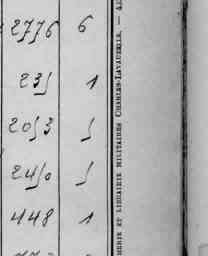 2776 6
235 1
2053 5
2450 5
448 1
MERIE ET LIBRAIRIE MILITAIRES CHARLES-LAVAUZELLE. —